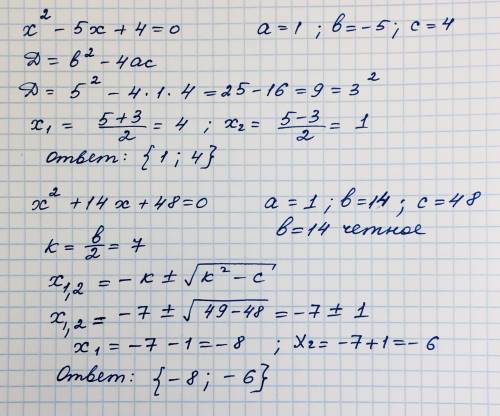 x² - 5x + 4 = 0      a = 1 ; в = -5 ; c = 4
Д = в² - 4ac
Д = 5² - 4 · 1 · 4 = 25 - 16 = 9 = 3²
x₁ = (5+3)/2 = 4 ; x₂ = (5-3)/2 = 1
Ответ: {1 ; 4}
x² + 14x + 48 = 0      a = 1 ; в = 14 ; c = 48
к = в/2 = 7      в = 14 четное
x₁,₂ = -к ± √(к² - c)
x₁,₂ = -7 ± √(49 - 48) = -7 ± 1
x₁ = -7 - 1 = -8 ; x₂ = -7 + 1 = -6
Ответ: {-8 ; -6}